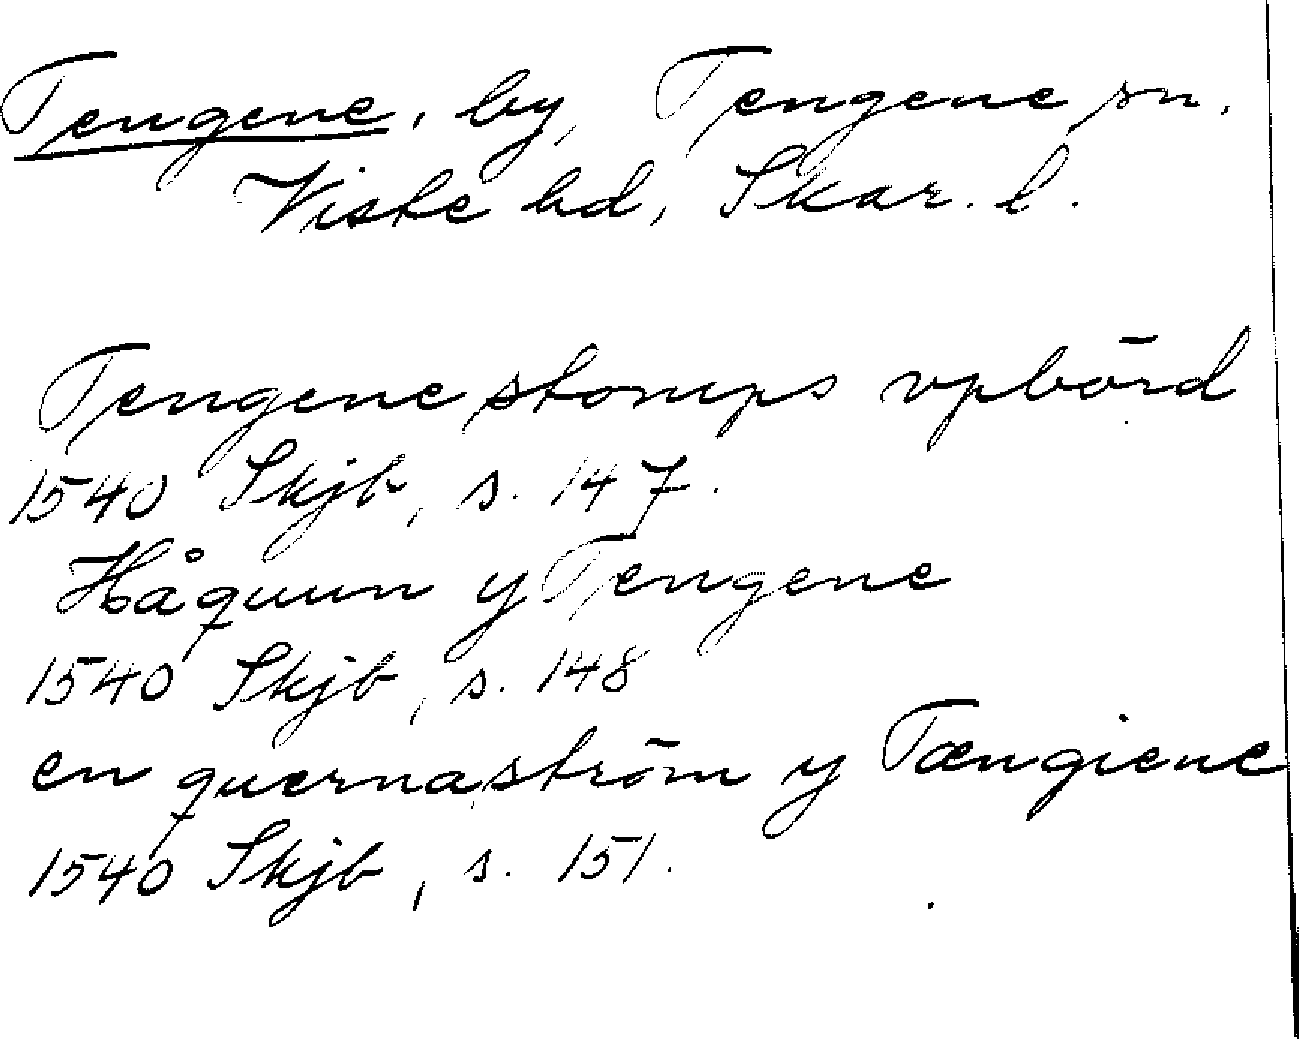 Tengene, by, Tengene sn.
Viste hd, Skar. l.
Tengene stomps vpbörd
1540 Skjb, s. 147.
Håquun y Tengene
1540 Skjb, s. 148
en quernaström y Tængiene
1540 Skjb, s. 151.